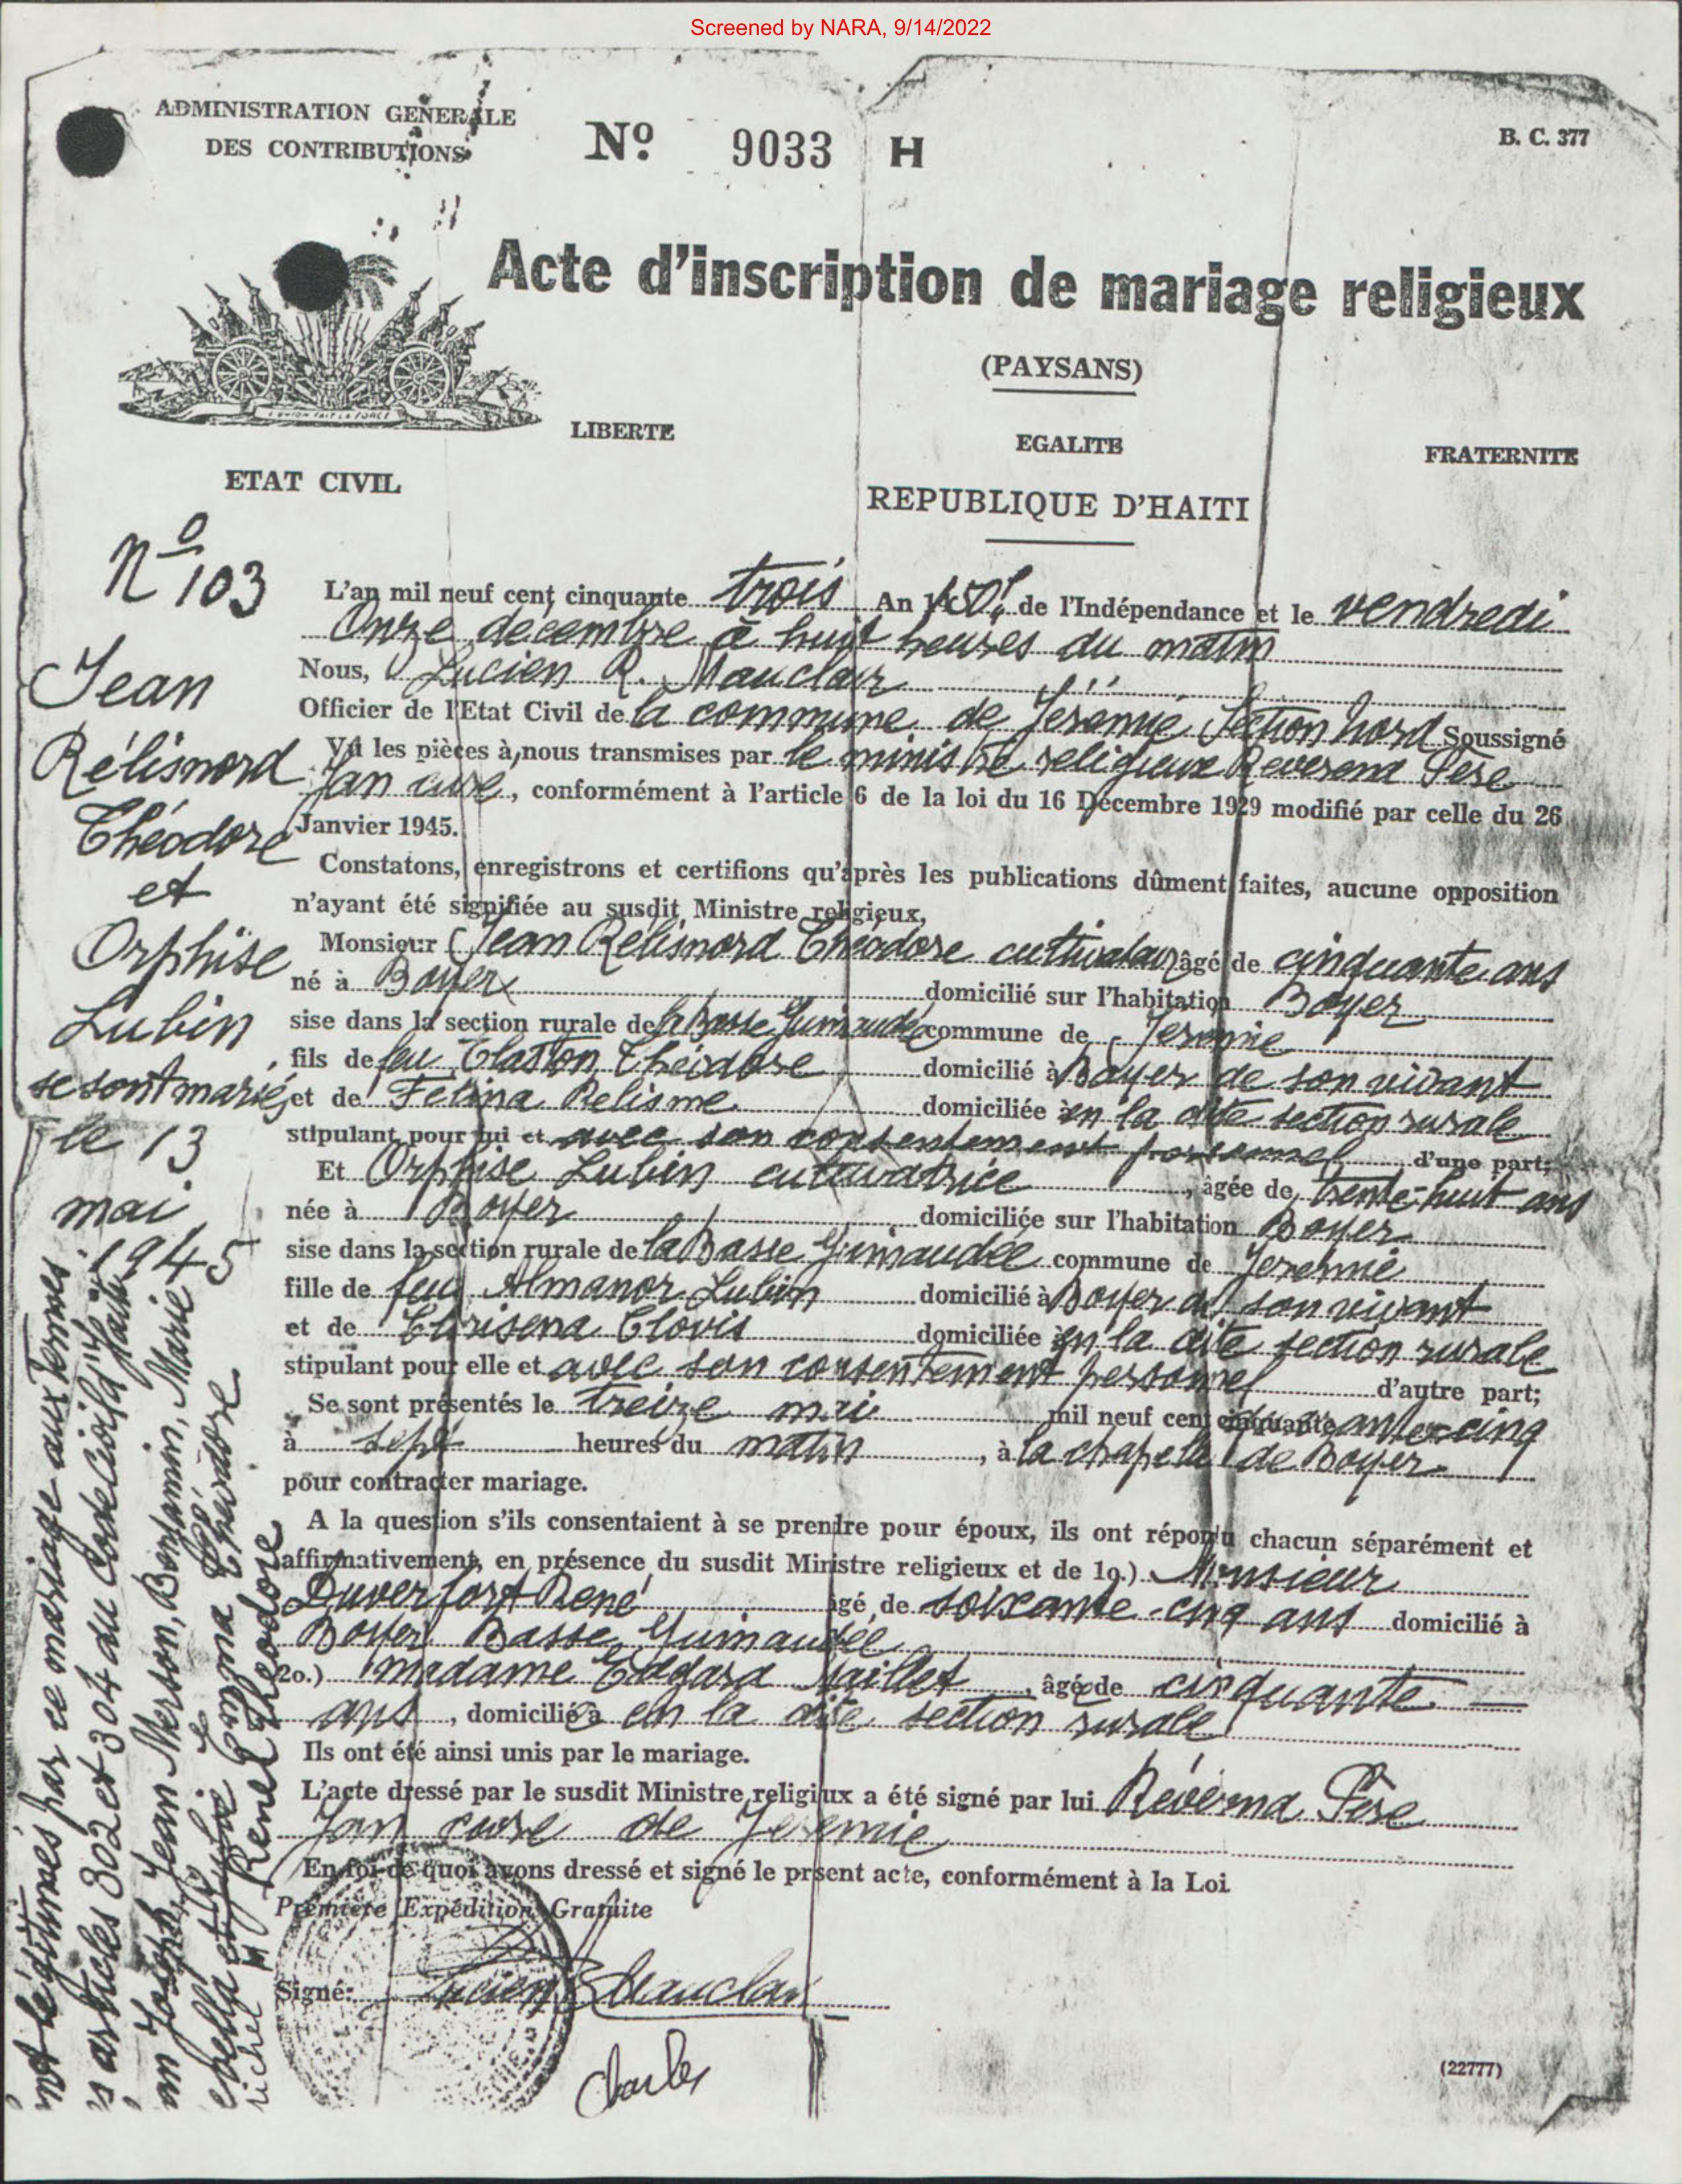 Screened by NARA, 9/14/2022
ADMINISTRATION GENERALE
DES CONTRIBUTIONS
Nº 9033 H
B. C. 377
Acte d'inscription de mariage religieux
(PAYSANS)
L'UNION FAIT LA FORCE
LIBERTE
EGALITE
FRATERNITE
ETAT CIVIL
REPUBLIQUE D'HAITI
Nº 103
Jean
Rélismord
Théodore
et
Orphise
Lubin
se sont mariés
le 13
mai
1945
L'an mil neuf cent cinquante trois An 150e de l'Indépendance et le vendredi
Onze décembre à huit heures du matin
Nous, Lucien R. Mauclair
Officier de l'Etat Civil de la commune de Jérémie Section Nord Soussigné
Vu les pièces à nous transmises par le ministre religieux Révérend Père
Jan curé, conformément à l'article 6 de la loi du 16 Décembre 1929 modifié par celle du 26
Janvier 1945.
Constatons, enregistrons et certifions qu'après les publications dûment faites, aucune opposition
n'ayant été signifiée au susdit Ministre religieux,
Monsieur Jean Rélismord Théodore cultivateur âgé de cinquante ans
né à Boyer domicilié sur l'habitation Boyer
sise dans la section rurale de la Basse Guinaudée commune de Jérémie
fils de feu Théodore domicilié à Boyer de son vivant
et de Felina Relisme domiciliée en la dite section rurale
stipulant pour lui et avec son consentement personnel d'une part;
Et Orphise Lubin cultivatrice, âgée de trente-huit ans
née à Boyer domiciliée sur l'habitation Boyer
sise dans la section rurale de la Basse Guinaudée commune de Jérémie
fille de feu Almanor Lubin domicilié à Boyer de son vivant
et de Clovis domiciliée en la dite section rurale
stipulant pour elle et avec son consentement personnel d'autre part;
Se sont présentés le treize mai mil neuf cent cinquante
à sept heures du matin, à la chapelle de Boyer
pour contracter mariage.
A la question s'ils consentaient à se prendre pour époux, ils ont répondu chacun séparément et
affirmativement, en présence du susdit Ministre religieux et de 1o.) Monsieur
Duverfort René âgé de soixante-cinq ans domicilié à
Boyer Basse Guinaudée
2o.) madame Edgard Jaillet, âgée de cinquante
ans, domiciliée à en la dite section rurale
Ils ont été ainsi unis par le mariage.
L'acte dressé par le susdit Ministre religieux a été signé par lui Révérend Père
Jan curé de Jérémie
En foi de quoi avons dressé et signé le prsent acte, conformément à la Loi
Première Expédition Gratuite
Signé: Lucien R Mauclair
Charles
(22777)
légitimés par ce mariage aux termes
articles 302 et 304 du Code Civil d'Haïti
Joseph, Jean Merson, Benjamin, Marie
Théodore
René Théodore